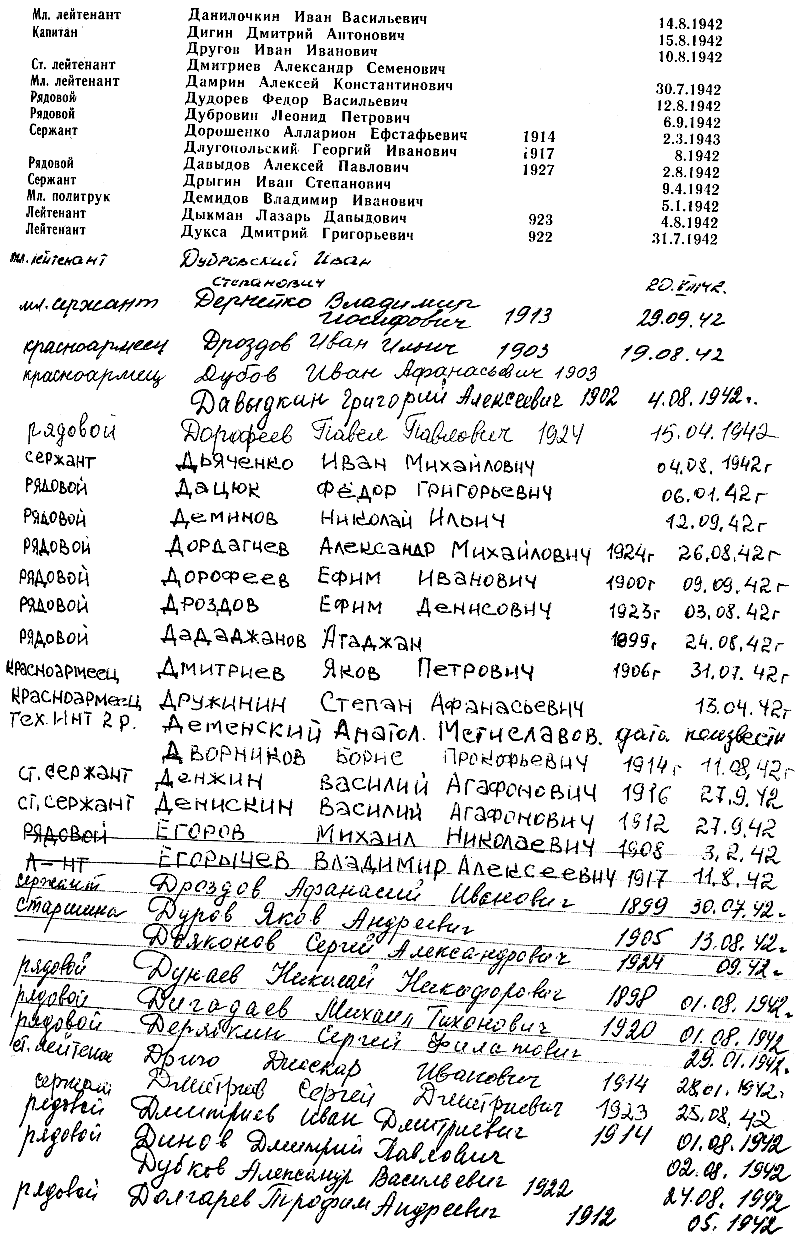 Мл. лейтенант Данилочкин Иван Васильевич 14.8.1942
Капитан Дигин Дмитрий Антонович 15.8.1942
Другов Иван Иванович 10.8.1942
Ст. лейтенант Дмитриев Александр Семенович
Мл. лейтенант Дамрин Алексей Константинович 30.7.1942
Рядовой Дудорев Федор Васильевич 12.8.1942
Рядовой Дубровин Леонид Петрович 6.9.1942
Сержант Дорошенко Алларион Ефстафьевич 1914 2.3.1943
Длугопольский Георгий Иванович 1917 8.1942
Рядовой Давыдов Алексей Павлович 1927 2.8.1942
Сержант Дрыгин Иван Степанович 9.4.1942
Мл. политрук Демидов Владимир Иванович 5.1.1942
Лейтенант Дыкман Лазарь Давыдович 923 4.8.1942
Лейтенант Дукса Дмитрий Григорьевич 922 31.7.1942
мл. лейтенант Дубровский Иван
Степанович
мл. сержант Дернейко Владимир
Иосифович 1913 29.09.42
красноармеец Дроздов Иван Ильич 1903 19.08.42
красноармец Дубов Иван Афанасьевич 1903
Давыдкин Григорий Алексеевич 1902 4.08.1942г.
рядовой Дорофеев Павел Павлович 1924 15.04.1942
сержант Дьяченко Иван Михайлович 04.08.1942г
рядовой Дацюк Фёдор Григорьевич 06.01.42г
рядовой Деминов Николай Ильич 12.09.42г
рядовой Дордагчев Александр Михайлович 1924г 26.08.42г
рядовой Дорофеев Ефим Иванович 1900г 09.09.42г
рядовой Дроздов Ефим Денисович 1923г 03.08.42г
рядовой Дададжанов Атаджан 1899г. 24.08.42г
красноармеец Дмитриев Яков Петрович 1906г 31.07.42г
красноармеец Дружинин Степан Афанасьевич 13.04.42г
Тех. инт 2 р. Деменский Анатол. Мстиславов. дата неизвестн
Дворников Борис Прокорьевич 1914г 11.08.42г
ст. сержант Денжин Василий Агафонович 1916 27.9.42
ст. сержант Денискин Василий Агафонович 1912 27.9.42
рядовой Егоров Михаил Николаевич 1908 3.2.42
л-нт Егорычев Владимир Алексеевич 1917 11.8.42
сержант Дроздов Афанасий Иванович 1899 30.07.42г.
старшина Дуров Яков Андреевич 1905 13.08.42г.
Дьяконов Сергей Александрович 1924 09.42г.
рядовой Дунаев Николай Никифорович 1898 01.08.1942г.
рядовой Дигадаев Михаил Тихонович 1920 01.08.1942
рядовой Дерябкин Сергей Филатович 29.01.1942г.
ст. лейтенант Иванович 1914 28.01.1942г
сержант Дмитриев Сергей Дмитриевич 1923 25.08.42
рядовой Дмитриев Иван Дмитриевич 1914 01.08.1942
рядовой Динов Дмитрий Павлович 02.08.1942
Дубков Александр Васильевич 1922 24.08.1942
рядовой Долгарев Трофим Андреевич 1912 05.1942